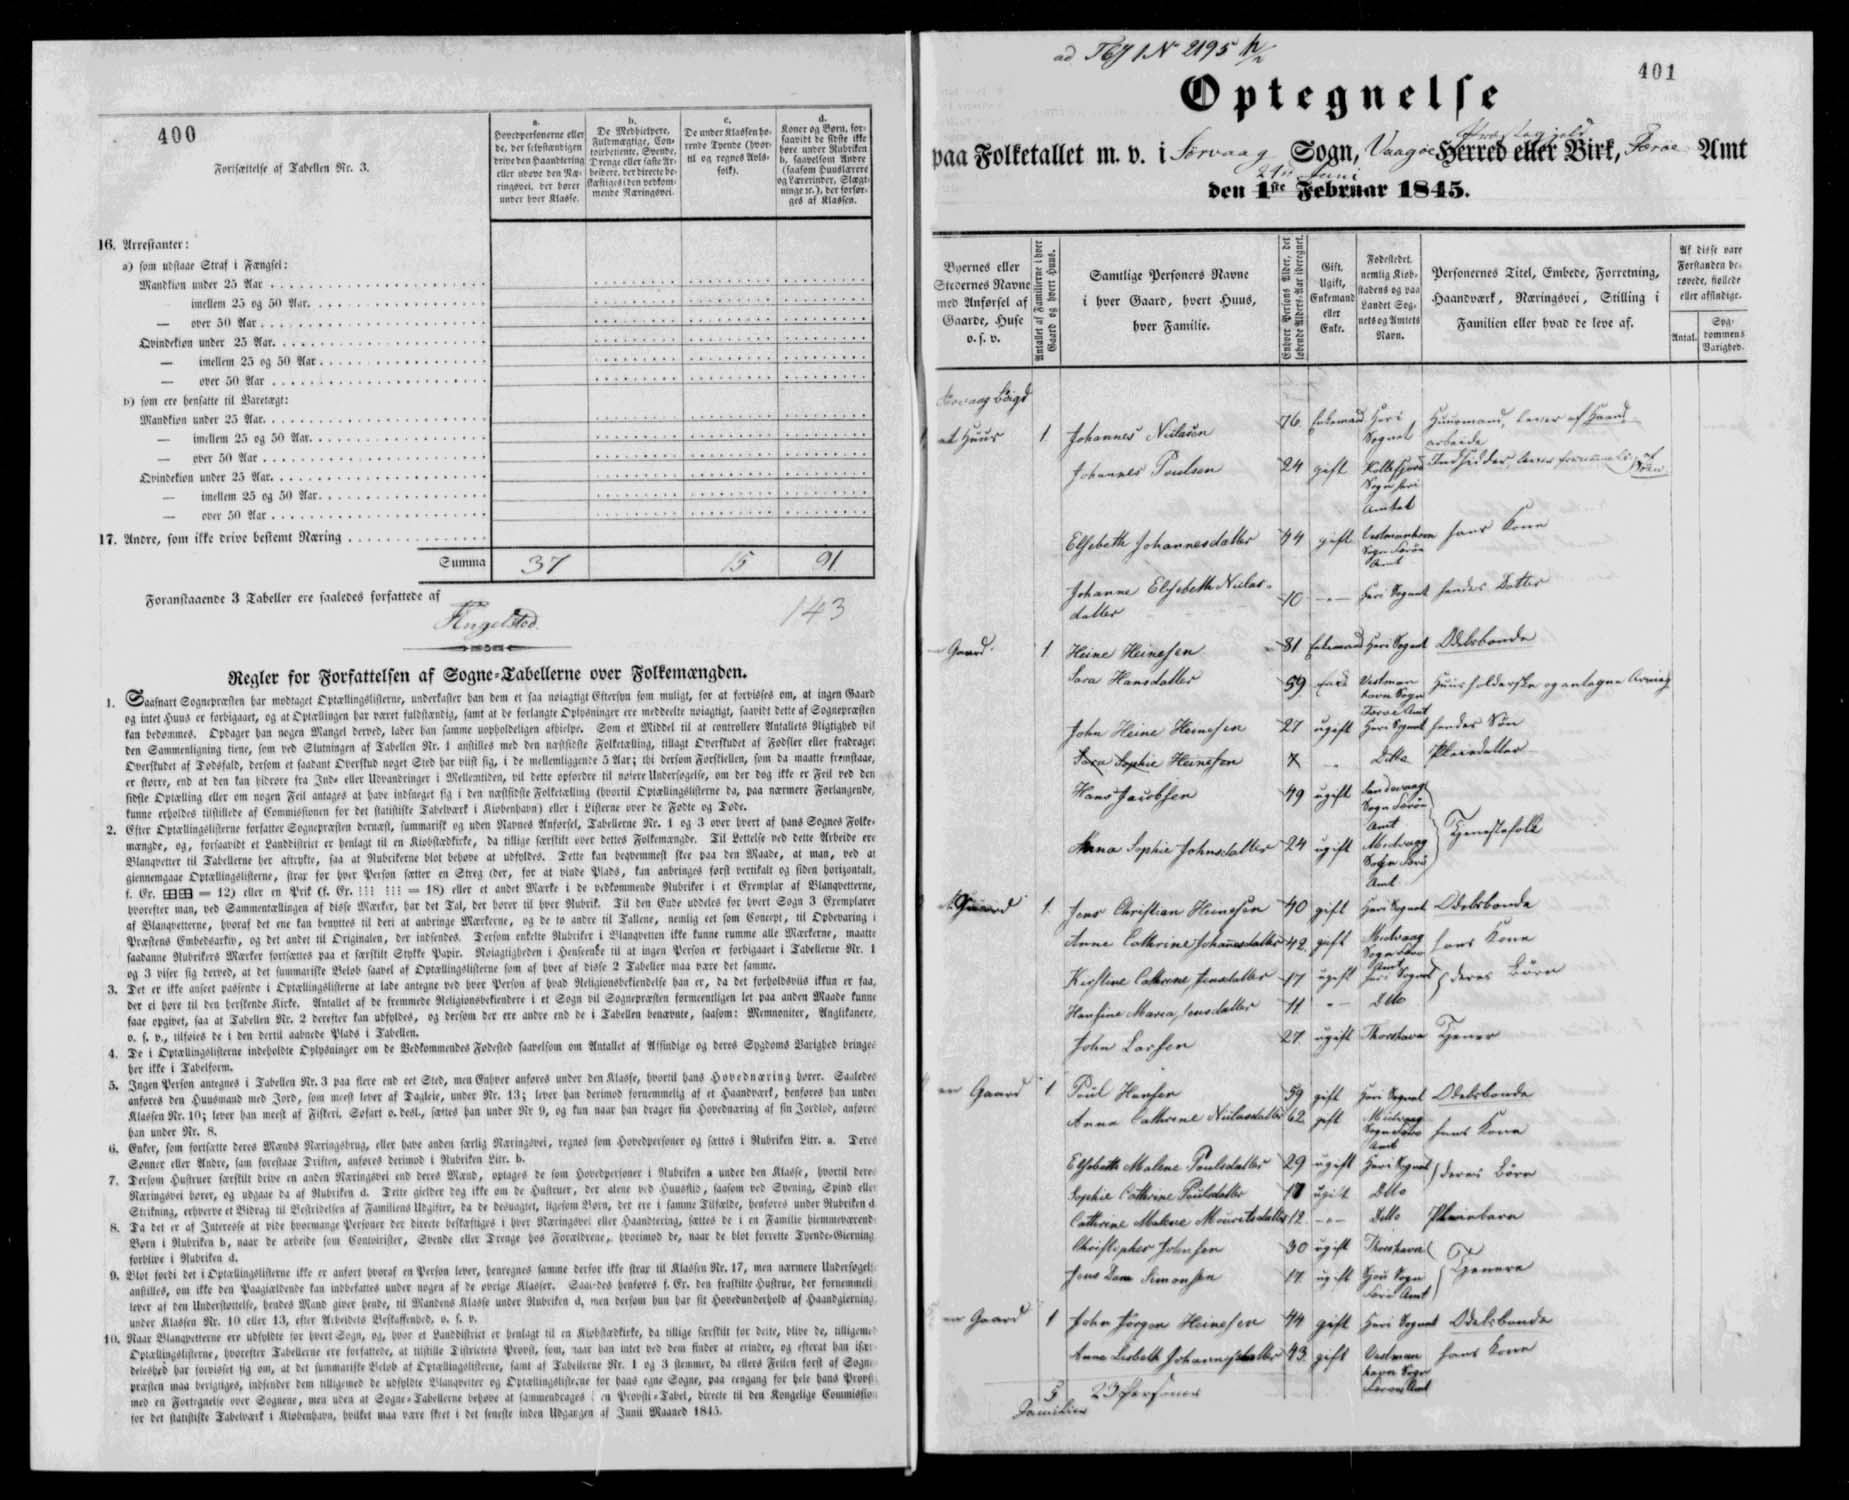 400
Fortsættelse af Tabellen Nr. 3.
a.
Hovedpersonerne eller
de, der selvstændigen
drive den Haandtering
eller udøve den Næ-
ringsvei, der hører
under hver Klasse.
b.
De Medhielpere,
Fuldmægtige, Con-
toirbetiente, Svende,
Drenge eller faste Ar-
beidere, der directe be-
skæftiges i den vedkom-
mende Næringsvei.
c.
De under Klassen hø-
rende Tyende (hvor-
til og regnes Avls-
folk).
d.
Koner og Børn, for-
saavidt de sidste ikke
høre under Rubriken
b, saavelsom Andre
(saasom Huuslærere
og Lærerinder, Slægt-
ninge ic.), der forsør-
ges af Klassen.
16. Arrestanter:
a) som udstaae Straf i Fængsel:
Mandkion under 25 Aar
imellem 25 og 50 Aar.
— over 50 Aar
Qvindekion under 25 Aar.
— imellem 25 og 50 Aar
— over 50 Aar
b) som ere hensatte til Varetægt:
Mandkion under 25 Aar.
— imellem 25 og 50 Aar.
— over 50 Aar
Qvindekion under 25 Aar.
— imellem 25 og 50 Aar.
— over 50 Aar
17. Andre, som ikke drive bestemt Næring
Summa 37 15 91
Foranstaaende 3 Tabeller ere saaledes forfattede af
143
Regler for Forfattelsen af Sogne-Tabellerne over Folkemængden.
1. Saasnart Sognepræsten har modtaget Optællingslisterne, underkaster han dem et saa nøiagtigt Eftersyn som muligt, for at forvisses om, at ingen Gaard
og intet Huus er forbigaaet, og at Optællingen har været fuldstændig, samt at de forlangte Oplysninger ere meddeelte nøiagtigt, saavidt dette af Sognepræsten
kan bedømmes. Opdager han nogen Mangel derved, lader han samme uopholdeligen afhielpe. Som et Middel til at controllere Antallets Rigtighed vil
den Sammenligning tiene, som ved Slutningen af Tabellen Nr. 1 anstilles med den næstsidste Folketælling, tillagt Overskudet af Fødsler eller fradraget
Overskudet af Dødsfald, dersom et saadant Overskud noget Sted har viist sig, i de mellemliggende 5 Aar; thi dersom Forskiellen, som da maatte fremstaae,
er større, end at den kan hidrøre fra Ind- eller Udvandringer i Mellemtiden, vil dette opfordre til nøiere Undersøgelse, om der dog ikke er Feil ved den
sidste Optælling eller om nogen Feil antages at have indsneget sig i den næstsidste Folketælling (hvortil Optællingslisterne da, paa nærmere Forlangende,
kunne erholdes tilstillede af Commissionen for det statistiske Tabelværk i Kiøbenhavn) eller i Listerne over de Fødte og Døde.
2. Efter Optællingslisterne forfatter Sognepræsten dernæst, summarisk og uden Navnes Anførsel, Tabellerne Nr. 1 og 3 over hvert af hans Sognes Folke-
mængde, og, forsaavidt et Landdistrict er henlagt til en Kiøbstædkirke, da tillige særskilt over dettes Folkemængde. Til Lettelse ved dette Arbeide ere
Blanqvetter til Tabellerne her aftrykte, saa at Rubrikerne blot behøve at udfyldes. Dette kan beqvemmest skee paa den Maade, at man, ved at
giennemgaae Optællingslisterne, strax for hver Person sætter en Streg (der, for at vinde Plads, kan anbringes først vertikalt og siden horizontalt,
f. Ex. = 12) eller en Prik (f. Ex. = 18) eller et andet Mærke i de vedkommende Rubriker i et Exemplar af Blanqvetterne,
hvorefter man, ved Sammentællingen af disse Mærker, har det Tal, der hører til hver Rubrik. Til den Ende uddeles for hvert Sogn 3 Exemplarer
af Blanqvetterne, hvoraf det ene kan benyttes til deri at anbringe Mærkerne, og de to andre til Tallene, nemlig eet som Concept, til Opbevaring i
Præstens Embedsarkiv, og det andet til Originalen, der indsendes. Dersom enkelte Rubriker i Blanqvetten ikke kunne rumme alle Mærkerne, maatte
saadanne Rubrikers Mærker fortsættes paa et særskilt Stykke Papir. Nøiagtigheden i Henseende til at ingen Person er forbigaaet i Tabellerne Nr. 1
og 3 viser sig derved, at det summariske Beløb saavel af Optællingslisterne som af hver af disse 2 Tabeller maa være det samme.
3. Det er ikke anseet passende i Optællingslisterne at lade antegne ved hver Person af hvad Religionsbekiendelse han er, da det forholdsviis ikkun er faa,
der ei høre til den herskende Kirke. Antallet af de fremmede Religionsbekiendere i et Sogn vil Sognepræsten formeentligen let paa anden Maade kunne
faae opgivet, saa at Tabellen Nr. 2 derefter kan udfyldes, og dersom der ere andre end de i Tabellen benævnte, saasom: Memnoniter, Anglikanere,
o. s. v., tilføies de i den dertil aabnede Plads i Tabellen.
4. De i Optællingslisterne indeholdte Oplysninger om de Vedkommendes Fødested saavelsom om Antallet af Affindige og deres Sygdoms Varighed bringes
her ikke i Tabelform.
5. Ingen Person antegnes i Tabellen Nr. 3 paa flere end eet Sted, men Enhver anføres under den Klasse, hvortil hans Hovednæring hører. Saaledes
anføres den Huusmand med Jord, som meest lever af Dagleie, under Nr. 13; lever han derimod fornemmelig af et Haandværk, henføres han under
Klassen Nr. 10; lever han meest af Fiskeri, Søfart o. desl., sættes han under Nr 9, og kun naar han drager sin Hovednæring af sin Jordlod, anføres
han under Nr. 8.
6. Enker, som fortsætte deres Mænds Næringsbrug, eller have anden særlig Næringsvei, regnes som Hovedpersoner og sættes i Rubriken Litr. a. Deres
Sønner eller Andre, som forestaae Driften, anføres derimod i Rubriken Litr. b.
7. Dersom Hustruer særskilt drive en anden Næringsvei end deres Mænd, optages de som Hovedpersoner i Rubriken a under den Klasse, hvortil deres
Næringsvei hører, og udgaae da af Rubriken d. Dette gielder dog ikke om de Hustruer, der alene ved Huusflid, saasom ved Syening, Spind eller
Strikning, erhverve et Bidrag til Bestridelsen af Familiens Udgifter, da de desuagtet, ligesom Børn, der ere i samme Tilfælde, henføres under Rubriken d.
8. Da det er af Interesse at vide hvormange Personer der directe beskæftiges i hver Næringsvei eller Haandtering, sættes de i en Familie hiemmeværende
Børn i Rubriken b, naar de arbeide som Contoirister, Svende eller Drenge hos Forældrene, hvorimod de, naar de blot forrette Tyende-Gierning
forblive i Rubriken d.
9. Blot fordi det i Optællingslisterne ikke er anført hvoraf en Person lever, henregnes samme derfor ikke strax til Klassen Nr. 17, men nærmere Undersøgelse
anstilles, om ikke den Paagiældende kan indbefattes under nogen af de øvrige Klasser. Saaledes henføres f. Ex. den fraskilte Hustrue, der fornemmelig
lever af den Understøttelse, hendes Mand giver hende, til Mandens Klasse under Rubriken d, men dersom hun har sit Hovedunderhold af Haandgierning,
under Klassen Nr. 10 eller 13, efter Arbeidets Beskaffenhed, o. s. v.
10. Naar Blanqvetterne ere udfyldte for hvert Sogn, og, hvor et Landdistrict er henlagt til en Kiøbstædkirke, da tillige særskilt for dette, blive de, tilligemed
Optællingslisterne, hvorefter Tabellerne ere forfattede, at tilstille Districtets Provst, som, naar han intet ved dem finder at erindre, og efterat han især-
deleshed har forvisset sig om, at det summariske Beløb af Optællingslisterne, samt af Tabellerne Nr. 1 og 3 stemmer, da ellers Feilen først af Sogne-
præsten maa berigtiges, indsender dem tilligemed de udfyldte Blanqvetter og Optællingslisterne for hans egne Sogne, paa eengang for hele hans Provsti
med en Fortegnelse over Sognene, men uden at Sogne-Tabellerne behøve at sammendrages i en Provsti-Tabel, directe til den Kongelige Commission
for det statistiske Tabelværk i Kiøbenhavn, hvilket maa være skeet i det seneste inden Udgangen af Junii Maaned 1845.
401
Optegnelse
paa Folketallet m. v. i Sørvaag Sogn, Vaagøe Præstegield Herred eller Birk, Færøe Amt
den 1ste Februar 1845.
Byernes eller
Stedernes Navne
med Anførsel af
Gaarde, Huse
o. s. v.
Antallet af Familierne i hver
Gaard og hvert Huus.
Samtlige Personers Navne
i hver Gaard, hvert Huus,
hver Familie.
Enhver Persons Alder, det
løbende Alders-Aar iberegnet.
Gift,
Ugift,
Enkemand
eller
Enke.
Fødestedet,
nemlig Kiøb-
stadens og paa
Landet Sog-
nets og Amtets
Navn.
Personernes Titel, Embede, Forretning,
Haandværk, Næringsvei, Stilling i
Familien eller hvad de leve af.
Af disse vare
Forstanden be-
røvede, fiollede
eller affindige.
Antal.
Syg-
dommens
Varighed.
Sørvaag Bøigd
et Huus 1. Johannes Niclasen 76. Enkemand Heri Sognet Huusmand, lever af Haand arbeide
Johannes Poulsen 24 gift Sogn heri Amtet Indsidder, lever
Elsebeth Johannesdatter 44 gift Vestmanhavn Sogn Færøe Amt hans Kone
Johanne Elsebeth Niclas-
datter 10 -"- Heri Sognet hendes Datter
Gaard 1 Heine Heinesen 81 Enkemand Heri Sognet Odelsbonde
Sara Hansdatter 59 Vestman havn Sogn Færøe Amt Huusholderske og
John Heine Heinesen 27 ugift Heri Sognet hendes Søn
Sara Sophie Heinesen 7 " Ditto Pleiedatter
Hans Jacobsen 49 ugift Sandevaag Sogn Færøe Amt
Anna Sophie Johnsdatter 24 ugift Midvaag Sogn Færø Amt Tjenestefolk
Gaard 1. Jens Christian Heinesen 40 gift Heri Sognet Odelsbonde
Anne Cathrine Johannesdatter 42. gift Midvaag Sogn Færø Amt hans Kone
Kirstine Cathrine Jensdatter 17 ugift Heri Sognet deres Børn
Hansine Maria Jensdatter 11 "- Ditto
John Larsen 27. ugift Thorshavn Tjener
en Gaard 1 Poul Hansen 59 gift Heri Sognet Odelsbonde
Anna Cathrine Niclasdatter 62. gift Midvaag Sogn Færø Amt hans Kone
Elsebeth Malene Poulsdatter 29 ugift Heri Sognet deres Børn
Sophie Cathrine Poulsdatter 17 ugift Ditto
Cathrine Malene Mouritsdatter 12. -"- Ditto Pleiebarn
Christopher Johnsen 30 ugift Thorshavn
Jens Simonsen 17. ugift Sogn Færø Amt Tjenere
en Gaard 1 John Jørgen Heinesen 44 gift Heri Sognet Odelsbonde
Anne Lisbeth Johannesdatter 43. gift Vestman havn Sogn Færøe Amt hans Kone
5 Familier 23 Personer